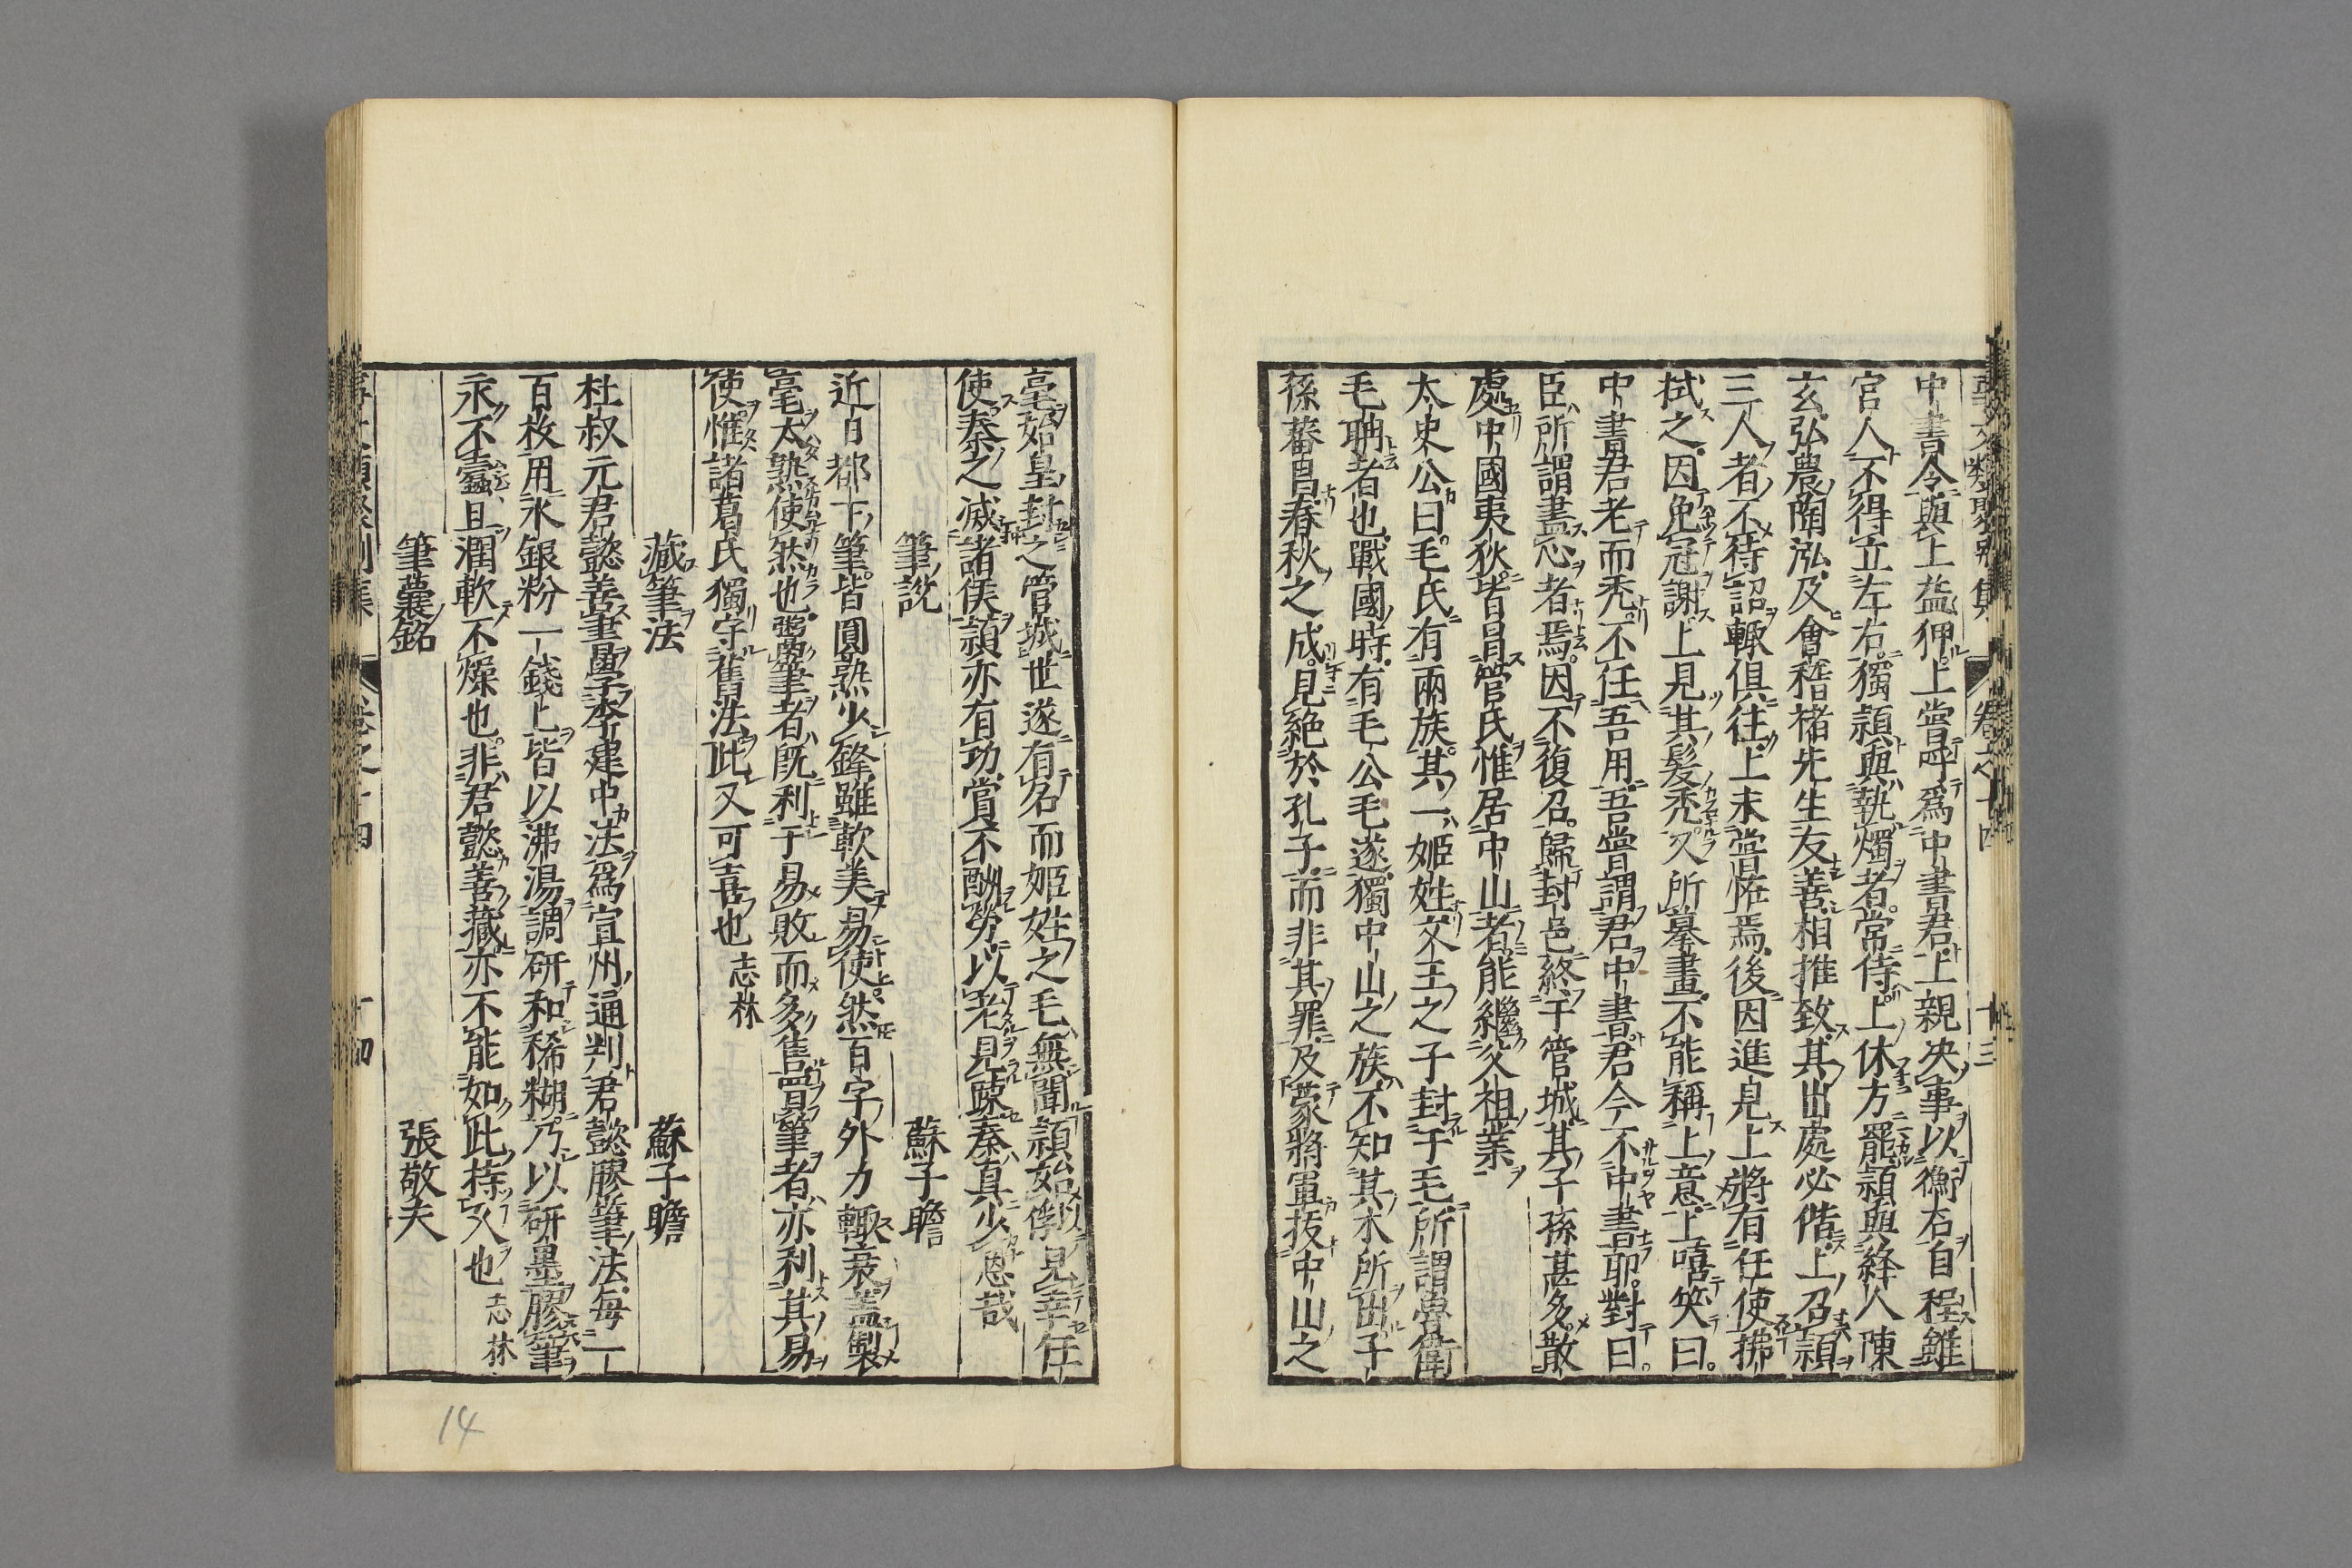 中書令與上益狎上嘗呼爲中書君上親决事以衡石自程雖
官人不得立左右獨頴與執燭者常侍上休方罷頴與絳人陳
玄弘農陶泓及會稽褚先生友善相推致其出處必偕上召頴
三人者不待詔輙俱往上未嘗恠焉後因進見上將有任使拂
拭之因免冠謝上見其髮禿又所摹畫不能稱上意上嘻笑曰
中書君老而禿不任吾用吾嘗謂君中書君今不中書耶對曰
臣所謂盡心者焉因不復召歸封邑終于管城其子孫甚多散
處中國夷狄皆冒管氏惟居中山者能繼父祖業
太史公曰毛氏有兩族其一姬姓文王之子封于毛所謂魯衛
毛聃者也戰國時有毛公毛遂獨中山之族不知其本所出子
孫蕃昌春秋之成見絶於孔子而非其罪及蒙將軍拔中山之
毫始皇封之管城世遂有名而姬姓之毛無聞頴始以俘見幸任
使秦之滅諸侯頴亦有功賞不酬勞以老見踈秦真少恩哉
筆說 蘇子瞻
近日都下筆皆圓熟少鋒雖軟美易使然百字外力輙衰蓋製
毫太熟使然也鬻筆者既利于易敗而多售買筆者亦利其易
使惟諸葛氏獨守舊法此又可喜也 志林
藏筆法 蘇子瞻
杜叔元君懿善書學李建中法爲宣州通判君懿膠筆法每一
百枚用水銀粉一錢上皆以沸湯調研和稀糊乃以研墨膠筆
永不蠧且潤軟不燥也非君懿善藏亦不能如此持久也 志林
筆囊銘 張敬夫
卷之十四 十四
14